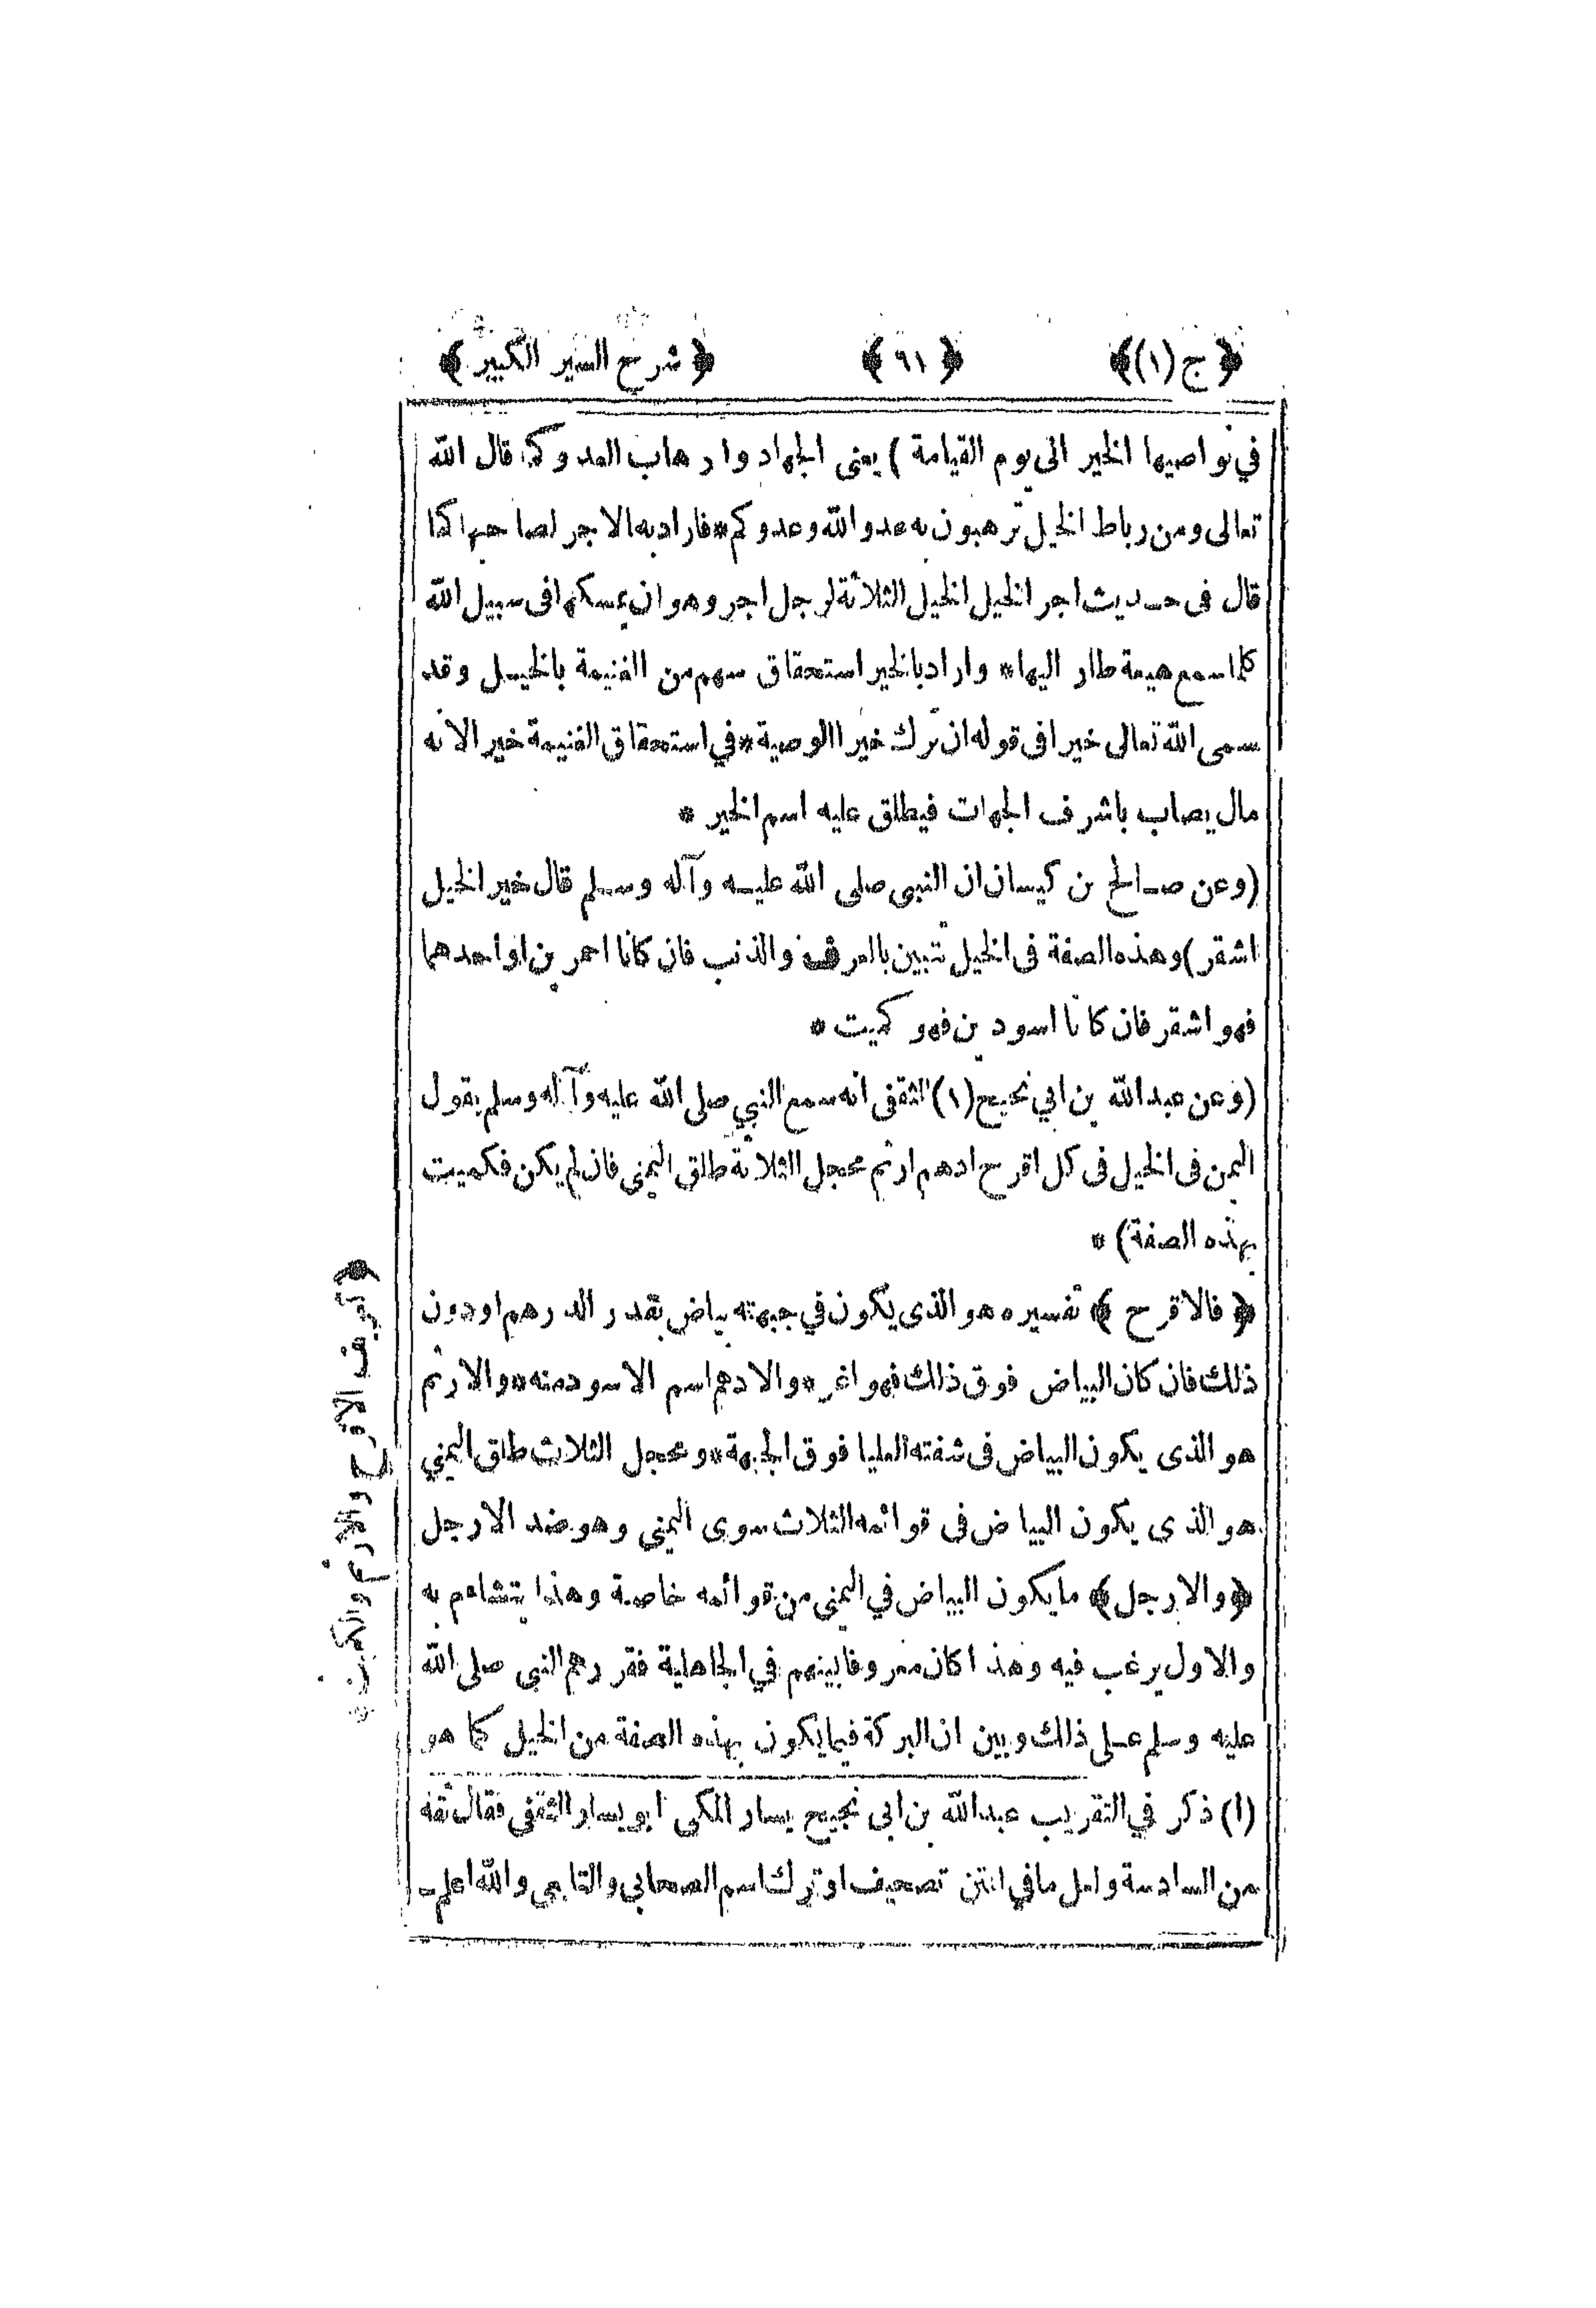 ﴿ ج (١) ﴾ ﴿ ٩١ ﴾ ﴿ شرح السير الكبير ﴾
في نواصيها الخير الى يوم القيامة ) يعنى الجهاد وارهاب العدو كما قال الله
تعالى ومن رباط الخيل ترهبون به عدو الله وعدوكم * فاراد به الاجر لصاحبها كما
قال فى حديث اجر الخيل الخيل الثلاثة لرجل اجر وهو ان يمسكها فى سبيل الله
كلما سمع هيعة طار اليها * واراد بالخير استحقاق سهم من الغنيمة بالخيل وقد
سمى الله تعالى خيرا فى قوله ان ترك خيرا الوصية * في استحقاق الغنيمة خير الانه
مال يصاب باشرف الجهات فيطلق عليه اسم الخير *
(وعن صالح بن كيسان ان النبى صلى الله عليه وآله وسلم قال خير الخيل
اشقر) وهذه الصفة فى الخيل تتبين بالعرف والذنب فان كانا احمرين او احدهما
فهو اشقر فان كانا اسودين فهو كميت *
(وعن عبد الله بن ابي نجيح (١) الثقفى انه سمع النبي صلى الله عليه وآله وسلم يقول
اليمن فى الخيل فى كل اقرح ادهم ارثم محجل الثلاثة طلق اليمنى فان لم يكن فكميت
بهذه الصفة) *
﴿ فالاقرح ﴾ تفسيره هو الذى يكون في جبهته بياض بقدر الدرهم اودون
ذلك فان كان البياض فوق ذلك فهو اغر * والادهم اسم الاسود منه * والارثم
هو الذى يكون البياض فى شفته العليا فوق الجبهة * ومحجل الثلاث طلق اليمني
هو الذى يكون البياض فى قوائمه الثلاث سوى اليمنى وهو ضد الارجل
﴿ والارجل ﴾ ما يكون البياض في اليمنى من قوائمه خاصة وهذا يتشاءم به
والاول يرغب فيه وهذا كان معروفا بينهم في الجاهلية فقررهم النبى صلى الله
عليه وسلم على ذلك وبين ان البركة فيما يكون بهذه الصفة من الخيل كما هو
(١) ذكر في التقريب عبد الله بن ابى نجيح يسار المكى ابو يسار الثقفى فقال ثقة
من السادسة ولعل ما في المتن تصحيف او ترك اسم الصحابي والتابعي والله اعلم
﴿ تعريف الاقرح والارثم والكميت